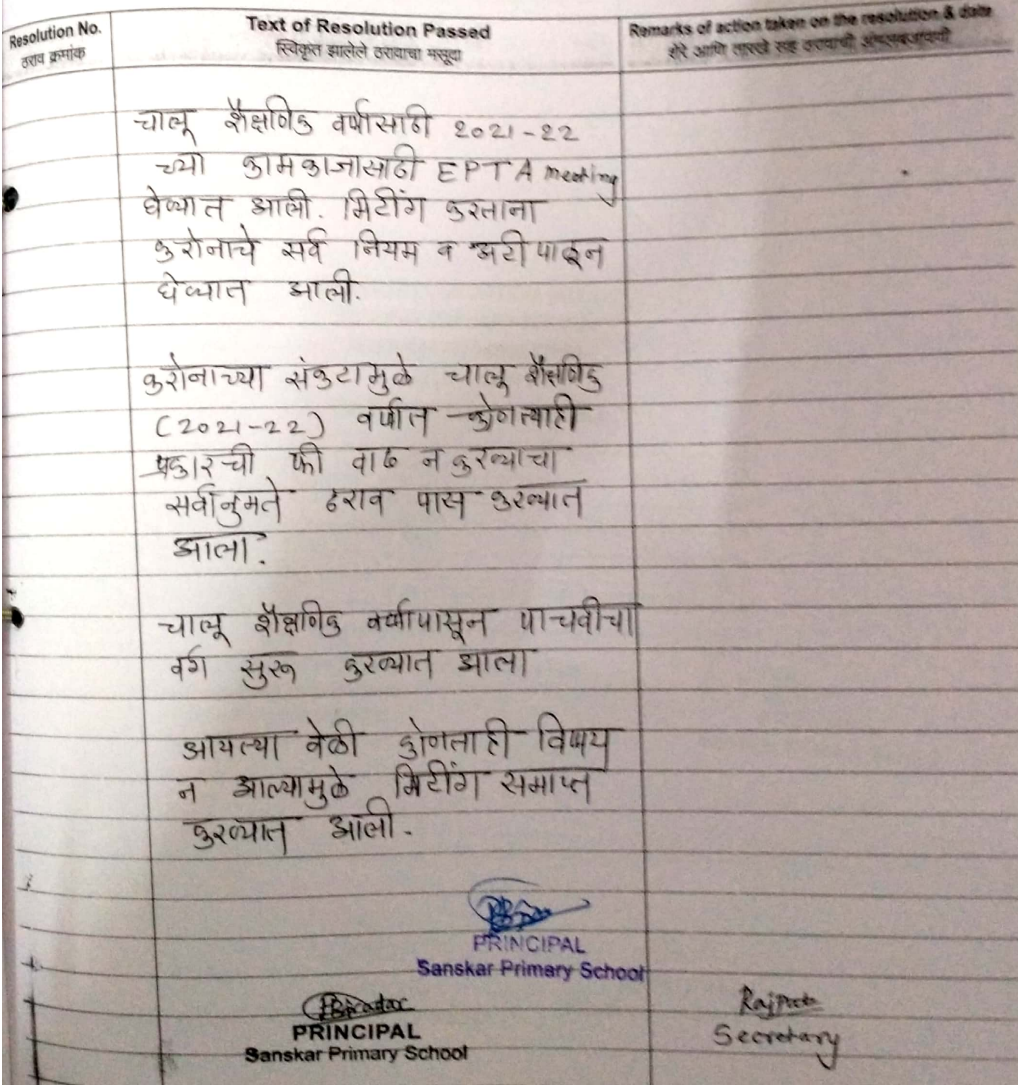 Resolution No.
ठराव क्रमांक
Text of Resolution Passed
स्विकृत झालेले ठरावाचा मसूदा
Remarks of action taken on the resolution & date
शेरे आणि तारखे सह ठरावाची अंमलबजावणी
चालू शैक्षणिक वर्षासाठी 2021-22
च्या कामकाजासाठी EPTA meeting
घेण्यात आली. मिटींग करताना
करोनाचे सर्व नियम व अटी पाळून
घेण्यात आली.
करोनाच्या संकटामुळे चालू शैक्षणिक
(2021-22) वर्षात कोणत्याही
प्रकारची फी वाढ न करण्याचा
सर्वानुमते ठराव पास करण्यात
आला.
चालू शैक्षणिक वर्षापासून पाचवीचा
वर्ग सुरू करण्यात आला
आयत्या वेळी कोणताही विषय
न आल्यामुळे मिटींग समाप्त
करण्यात आली.
PRINCIPAL
Sanskar Primary School
PRINCIPAL
Sanskar Primary School
Secretary